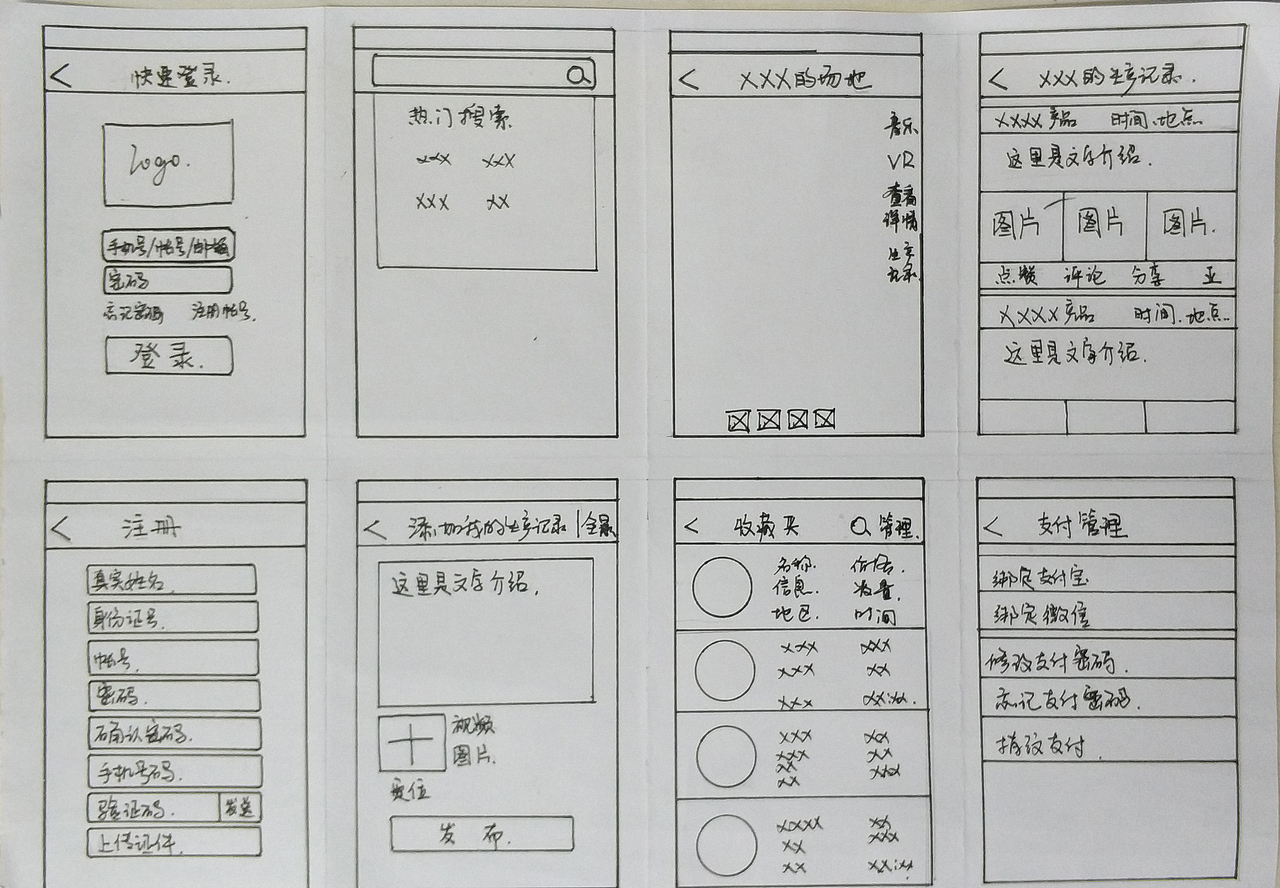 快速登录.
logo.
手机号/帐号/邮箱
密码
忘记密码 注册帐号.
登录.
热门搜索
xxx xxx
xxx xx
XXX的场地
音乐
VR
查看
详情
生产
记录.
XXX的生产记录.
XXXX产品 时间.地点.
这里是文字介绍.
图片 图片 图片.
点赞 评论 分享
XXXX产品 时间.地点..
这里是文字介绍.
注册
真实姓名.
身份证号.
帐号.
密码.
确认密码.
手机号码.
验证码. 发送
上传证件.
添加我的生产记录
这里是文字介绍.
视频
图片.
定位
发布.
收藏夹 管理.
名称. 价格.
信息. 数量.
地区. 时间
xxx xxx
xxx xx
xxx xx:xx.
xxx xx
xxx xx
xx xxx
xx
xxxx xx
xx xxx
xx xx:xx
支付管理
绑定支付宝
绑定微信
修改支付密码.
忘记支付密码.
指纹支付.